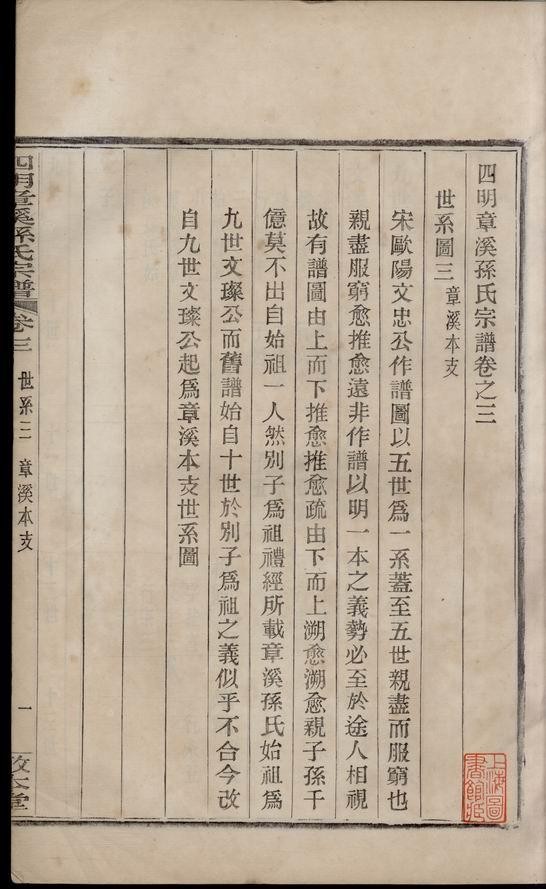 四明章溪孫氏宗譜卷之三
世系圖三 章溪本支
宋歐陽文忠公作譜圖以五世爲一系蓋至五世親盡而服窮也
親盡服窮愈推愈遠非作譜以明一本之義勢必至於途人相視
故有譜圖由上而下推愈推愈疏由下而上溯愈溯愈親子孫千
億莫不出自始祖一人然別子爲祖禮經所載章溪孫氏始祖爲
九世文璨公而舊譜始自十世於別子爲祖之義似乎不合今改
自九世文璨公起爲章溪本支世系圖
四明章溪孫氏宗譜 卷三 世系三 章溪本支 一
上海圖書館藏